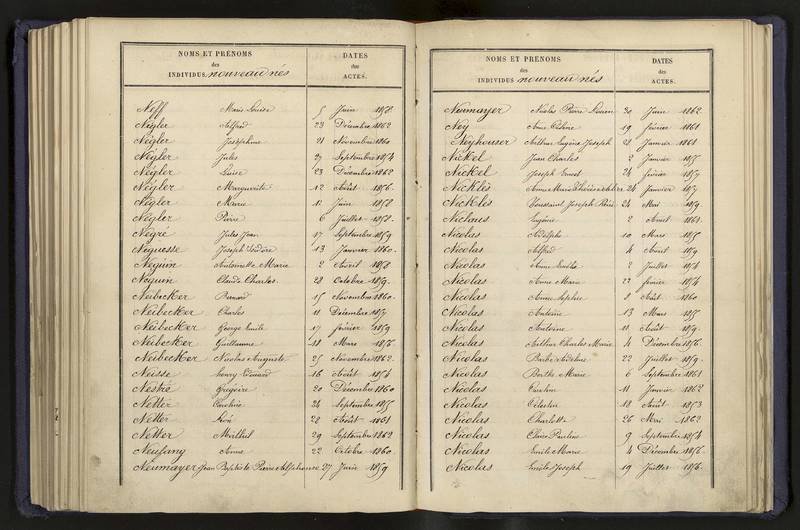 NOMS ET PRÉNOMS
des
INDIVIDUS nouveau nés
DATES
des
ACTES.
Neff Marie Louise 5 Juin 1858
Négler Alfred 23 Décembre 1862
Négler Joséphine 21 Novembre 1860
Négler Jules 27 Septembre 1854
Négler Louise 23 Décembre 1862
Négler Marguerite 12 Août 1856.
Négler Marie 11 Juin 1858
Négler Pierre 6 Juillet 1858.
Négré Jules Jean 17 Septembre 1859
Néguesse Joseph Isidore 13 Janvier 1860.
Néguin Antoinette Marie 2 Avril 1858
Néguin Claude Charles 28 Octobre 1859.
Neibecker Bernard 15 Novembre 1860.
Neibecker Charles 11 Décembre
Neibecker George Emile 17 février 1859
Neibecker Guillaume 18 Mars 1856
Neibecker Nicolas Auguste 25 Novembre 1862.
Neisse Henry Edouard 16 Août 1854
Grégoire 20 Décembre 1860
Netter Caroline 24 Septembre 1855
Netter Léon 28 Août 1861
Netter 29 Septembre 1862
Neufang Anne 22 Octobre 1860.
Neumayer Jean Baptiste Pierre Alphonse 27 Juin 1859
NOMS ET PRÉNOMS
des
INDIVIDUS nouveau nés
DATES
des
ACTES.
Neumayer Nicolas Pierre 20 Juin 1862
Ney 19 février 1861
Neyhouser Arthur Eugène Joseph 28 Janvier 1861
Nickel Jean Charles 2 Janvier 1855
Nickel Joseph Ernest 24 février
Nicklès Anne Marie 24 Janvier
Nicklès Toussaint Joseph 24 Mai 1859.
Eugène 2 Août 1861.
Nicolas Adolphe 10 Mars 1855
Nicolas Alfred 4 Avril 1859
Nicolas Anne 2 Juillet 1856
Nicolas Anne Marie 22 février 1854
Nicolas Anne Sophie 8 Août 1860
Nicolas Antoine 13 Mars 1855
Nicolas Antoine 11 Août 1859.
Nicolas Arthur Charles Marie 4 Décembre 1856.
Nicolas Barbe Adeline 22 Juillet 1859.
Nicolas Berthe Marie 6 Septembre 1861
Nicolas Caroline 11 Janvier 1862
Nicolas Célestin 18 Août 1853
Nicolas Charlotte 26 Mai 1862
Nicolas Claire Pauline 9 Septembre 1854
Nicolas Emile Marie 4 Décembre 1856.
Nicolas Emile Joseph 19 Juillet 1856.